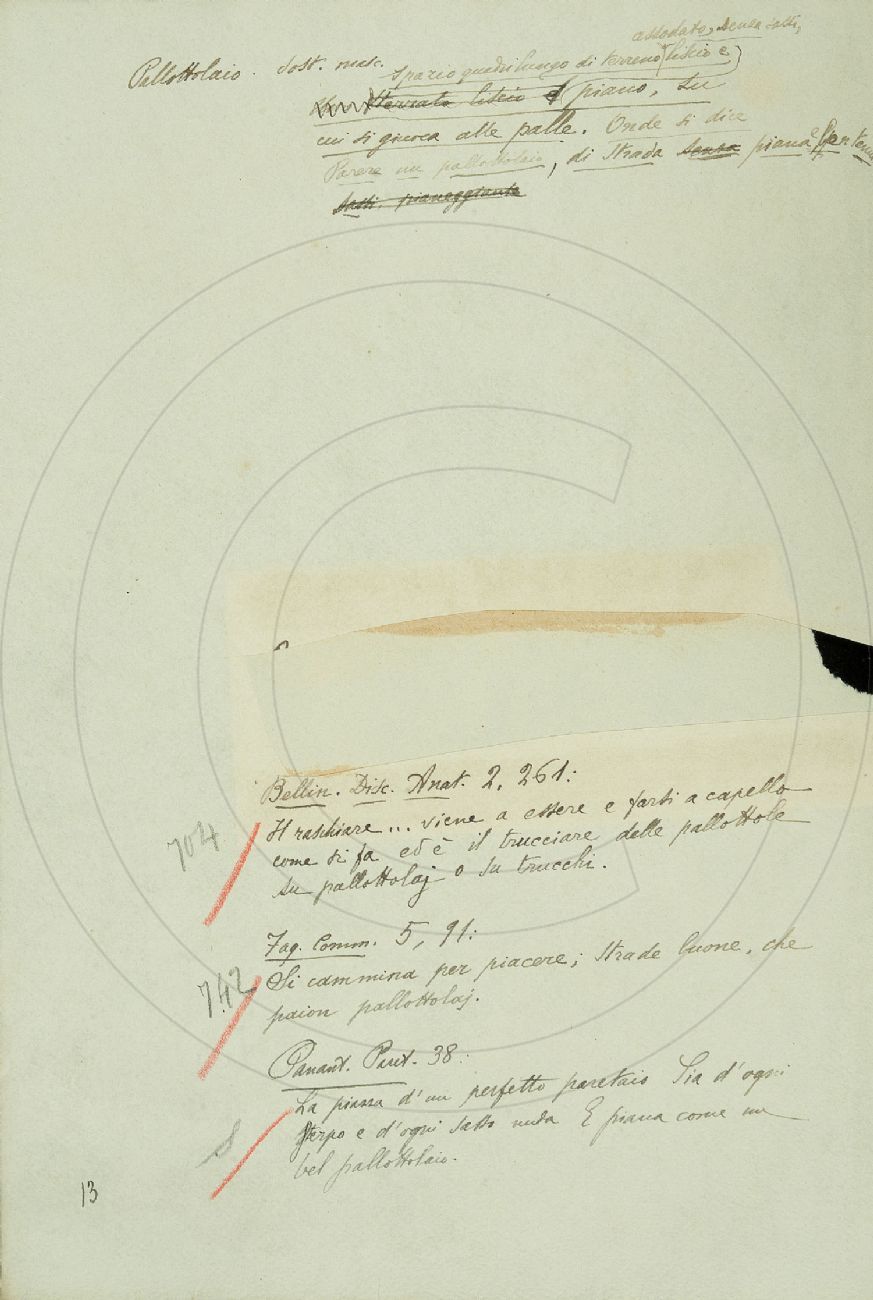 assodato, senza sassi,
Pallottolaio. Sost. masc.
spazio quadrilungo di terreno liscio e
Terrato liscio e piano, su
cui si giuoca alle palle. Onde si dice
Parere un pallottolaio, di strada senza piana e ben tenuta
sassi. pianeggiante
Bellin. Disc. Anat. 2, 261:
Il raschiare... viene a essere e farsi a capello
come si fa ed è il trucciare delle pallottole
su pallottolaj o su trucchi.
704
Fag. Comm. 5, 91:
Si cammina per piacere; strade buone, che
paion pallottolaj.
742
Panant. Paret. 38:
La piazza d'un perfetto paretaio Sia d'ogni
sterpo e d'ogni sasso nuda E piana come un
bel pallottolaio.
S
13